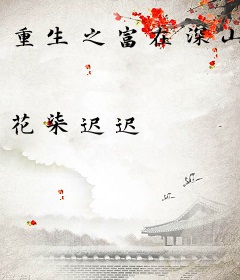 重生之富在深山
花柒迟迟